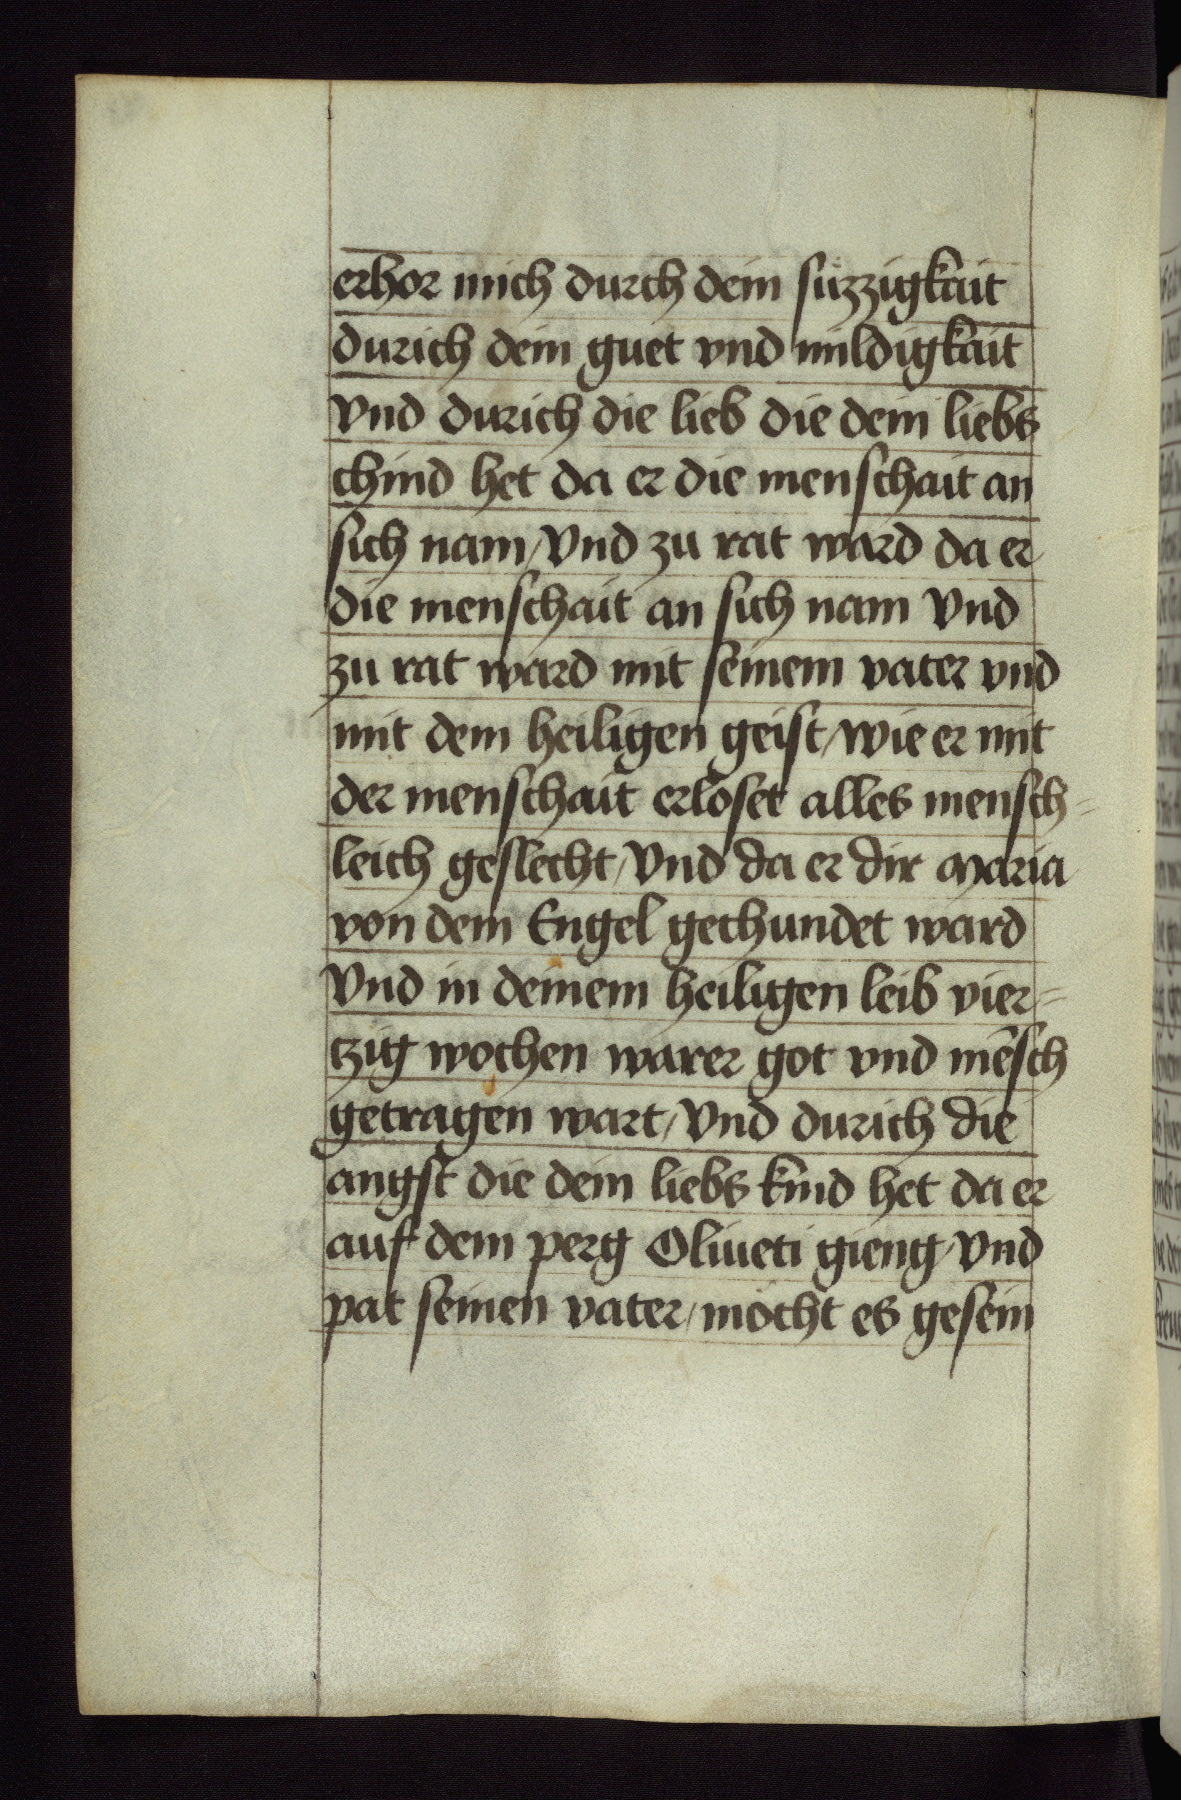 erhor mich durch dein süzzigkait
durich dein guet vnd mildigkait
vnd durich die lieb die dein liebs
chind het da er die menschait an
sich nam/ Vnd zu rat ward da er
die menschait an sich nam Vnd
zu rat ward mit seinem vater vnd
mit dem heiligen geist/ wie er mit
der menschait erlöset alles mensch=
leich geslecht/ Vnd da er dir Maria
von dem Engel gechundet ward
Vnd in deinem heiligen leib vier=
tzig wochen warer got vnd mēsch
getragen wart/ Vnd durich die
angst die dein liebs kind het da er
auf dem perg Oliueti gieng/ Vnd
pat seinen vater/ möcht es gesein